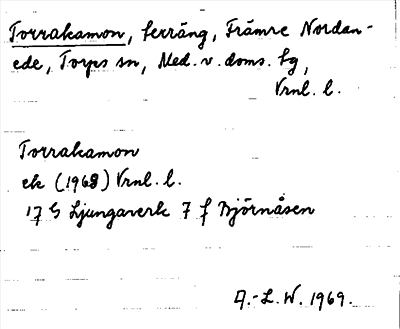 Torrakamon, terräng, Främre Nordan-
ede, Torps sn, Med. v. doms. bg,
Vrnl. l.
Torrakamon
ek (1968) Vrnl. l.
17 G Ljungaverk 7 f Björnåsen
A.-L.W. 1969.